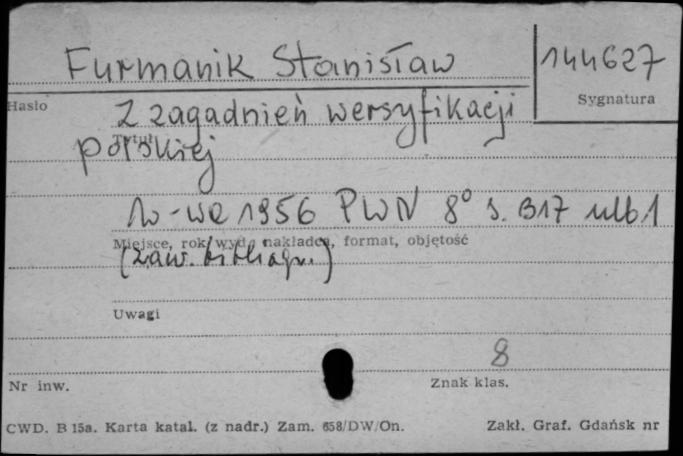 Furmanik Stanisław
144627
Hasło
Sygnatura
Z zagadnień wersyfikacji
Tytuł
polskiej
W-wa 1956 PWN 8° s. 317 nlb 1
Miejsce, rok wyd., nakładca, format, objętość
(zaw. bibliogr.)
Uwagi
8
Nr inw.
Znak klas.
CWD. B 15a. Karta katal. (z nadr.) Zam. 658/DW/On.
Zakł. Graf. Gdańsk nr